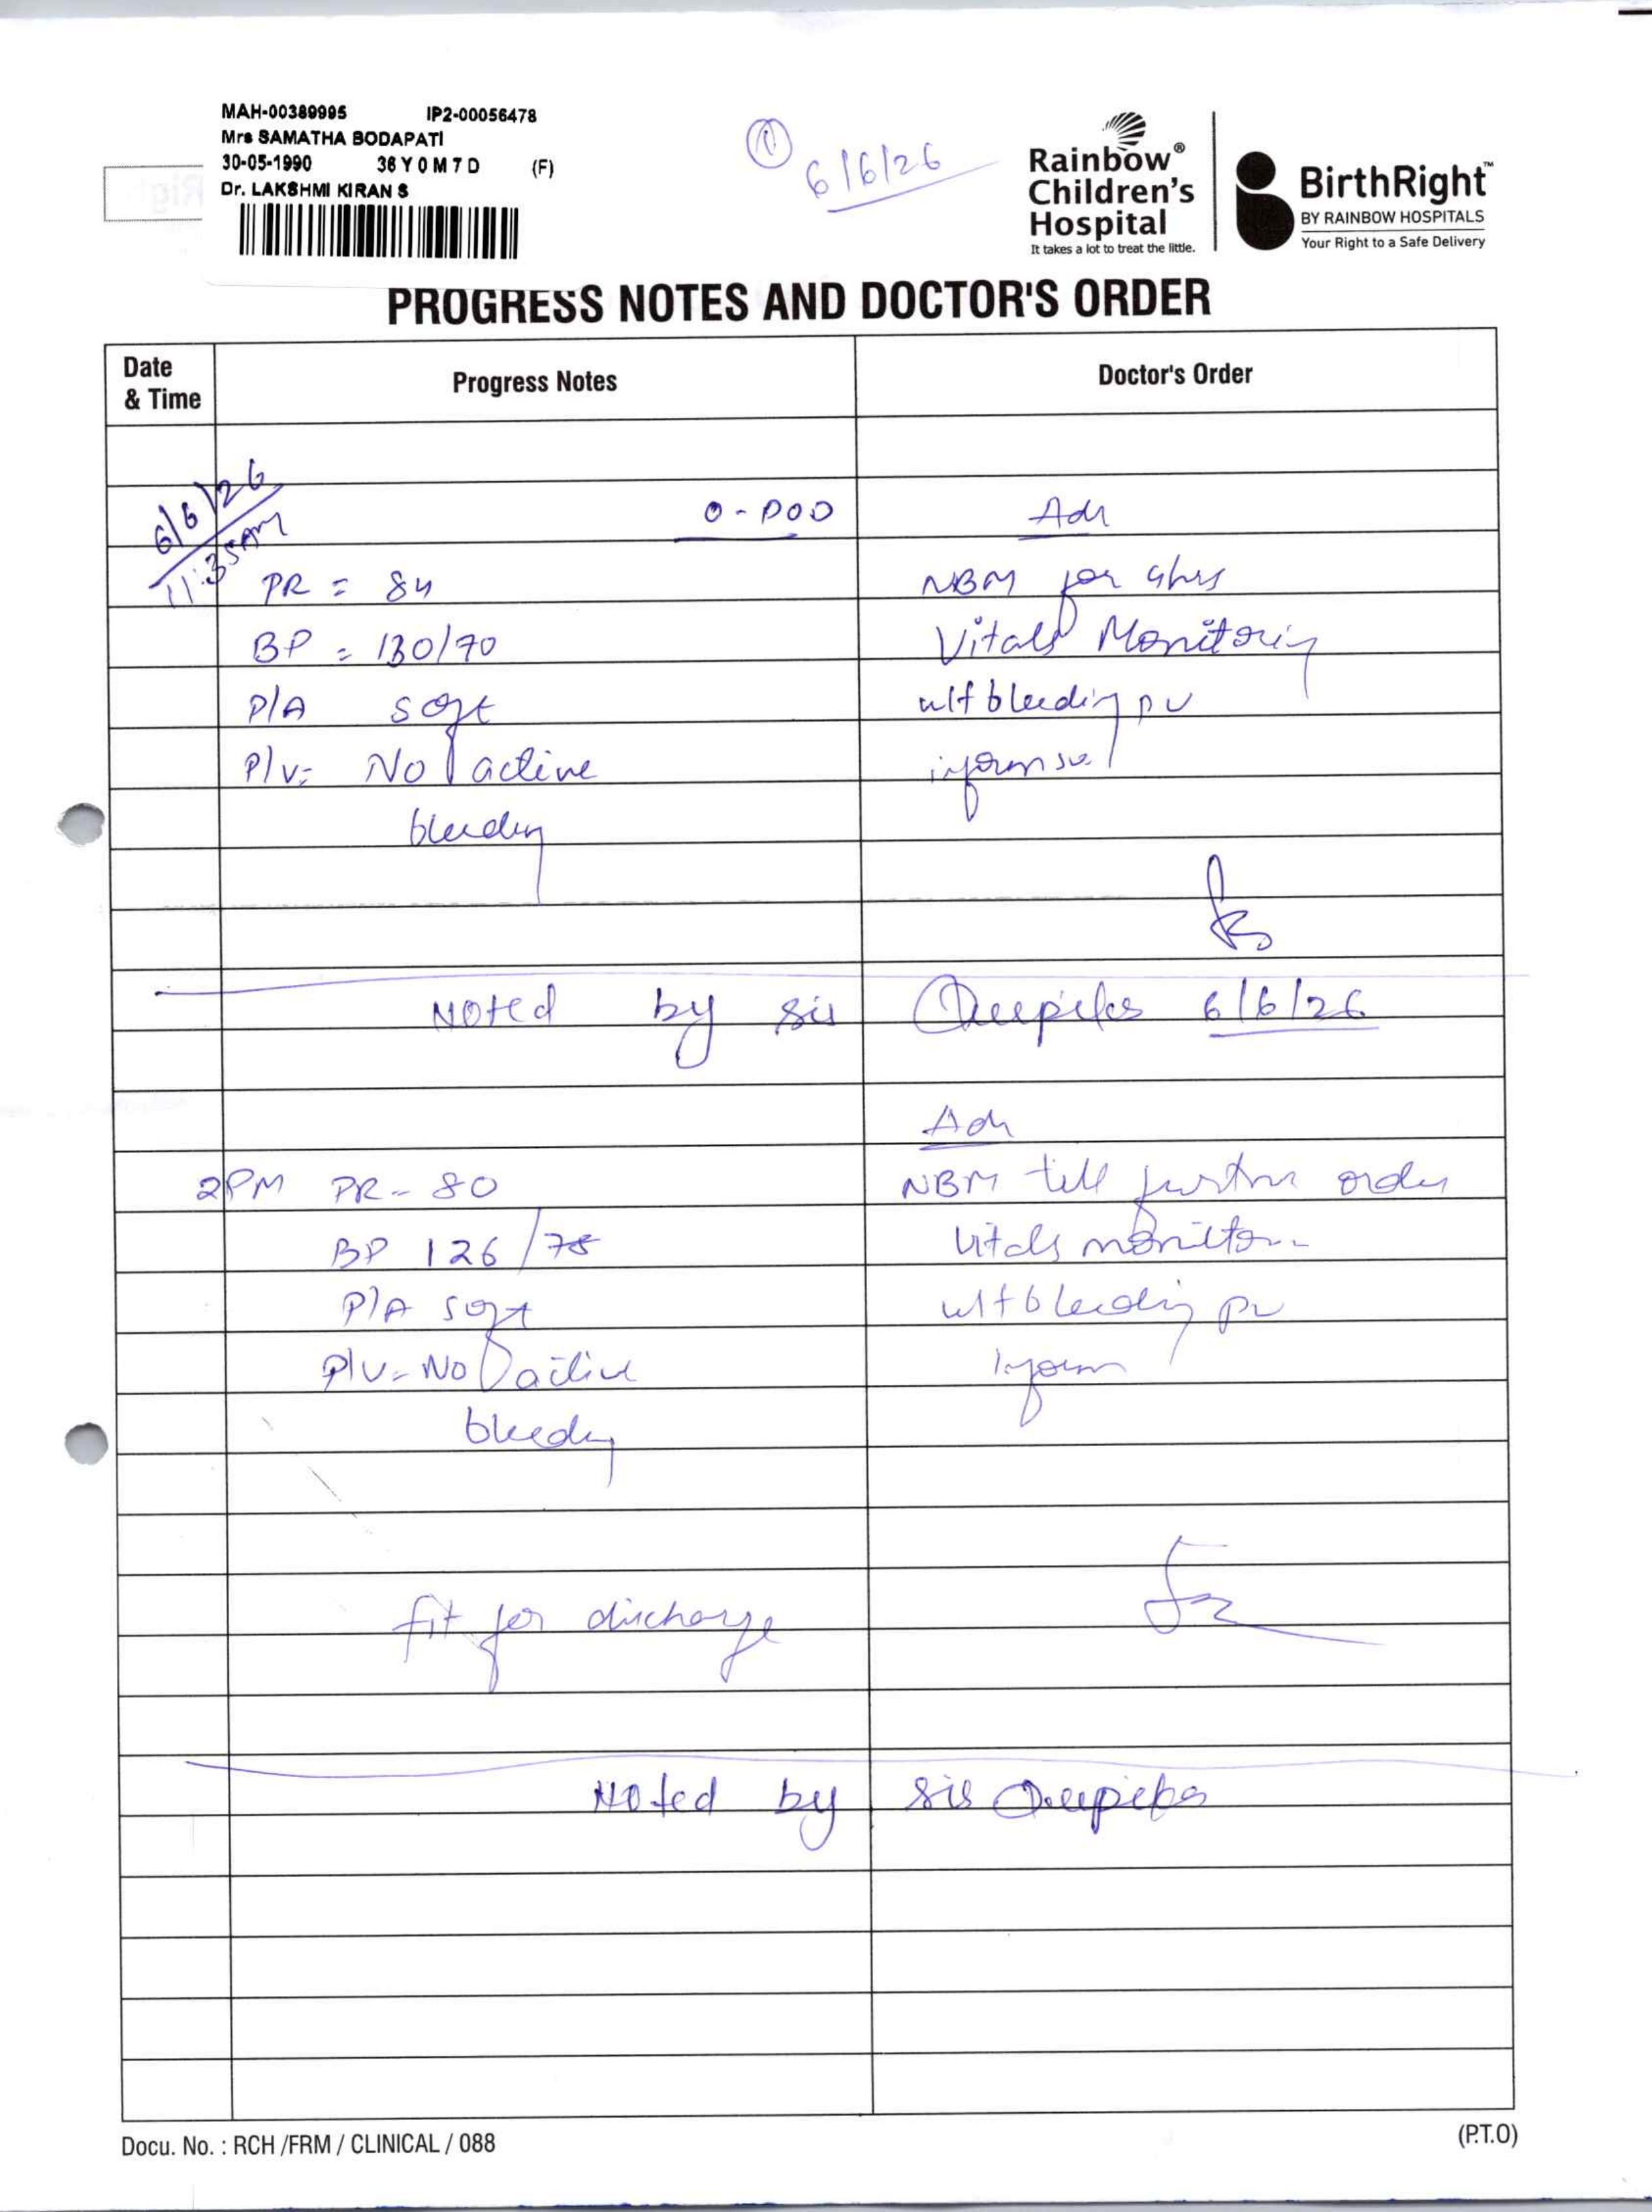 MAH-00389995 IP2-00056478
Mrs SAMATHA BODAPATI
30-05-1990 36 Y 0 M 7 D (F)
Dr. LAKSHMI KIRAN S
1 6/6/26
Rainbow® Children's Hospital
It takes a lot to treat the little.
BirthRight™
BY RAINBOW HOSPITALS
Your Right to a Safe Delivery
PROGRESS NOTES AND DOCTOR'S ORDER
Date & Time Progress Notes Doctor's Order
6/6/26 11:35AM
0-POD Adv
PR = 84 NBM for 4hrs
BP = 130/70 Vitals Monitoring
P/A soft w/f bleeding pv
P/v= No active inform sos
bleeding
Noted by sis Deepika 6/6/26
Adv
2PM PR- 80 NBM till further order
BP 126/75 Vitals monitor
P/A soft w/f bleeding pv
P/v- No active inform
bleeding
fit for discharge
Noted by sis Deepika
Docu. No. : RCH /FRM / CLINICAL / 088 (P.T.O)